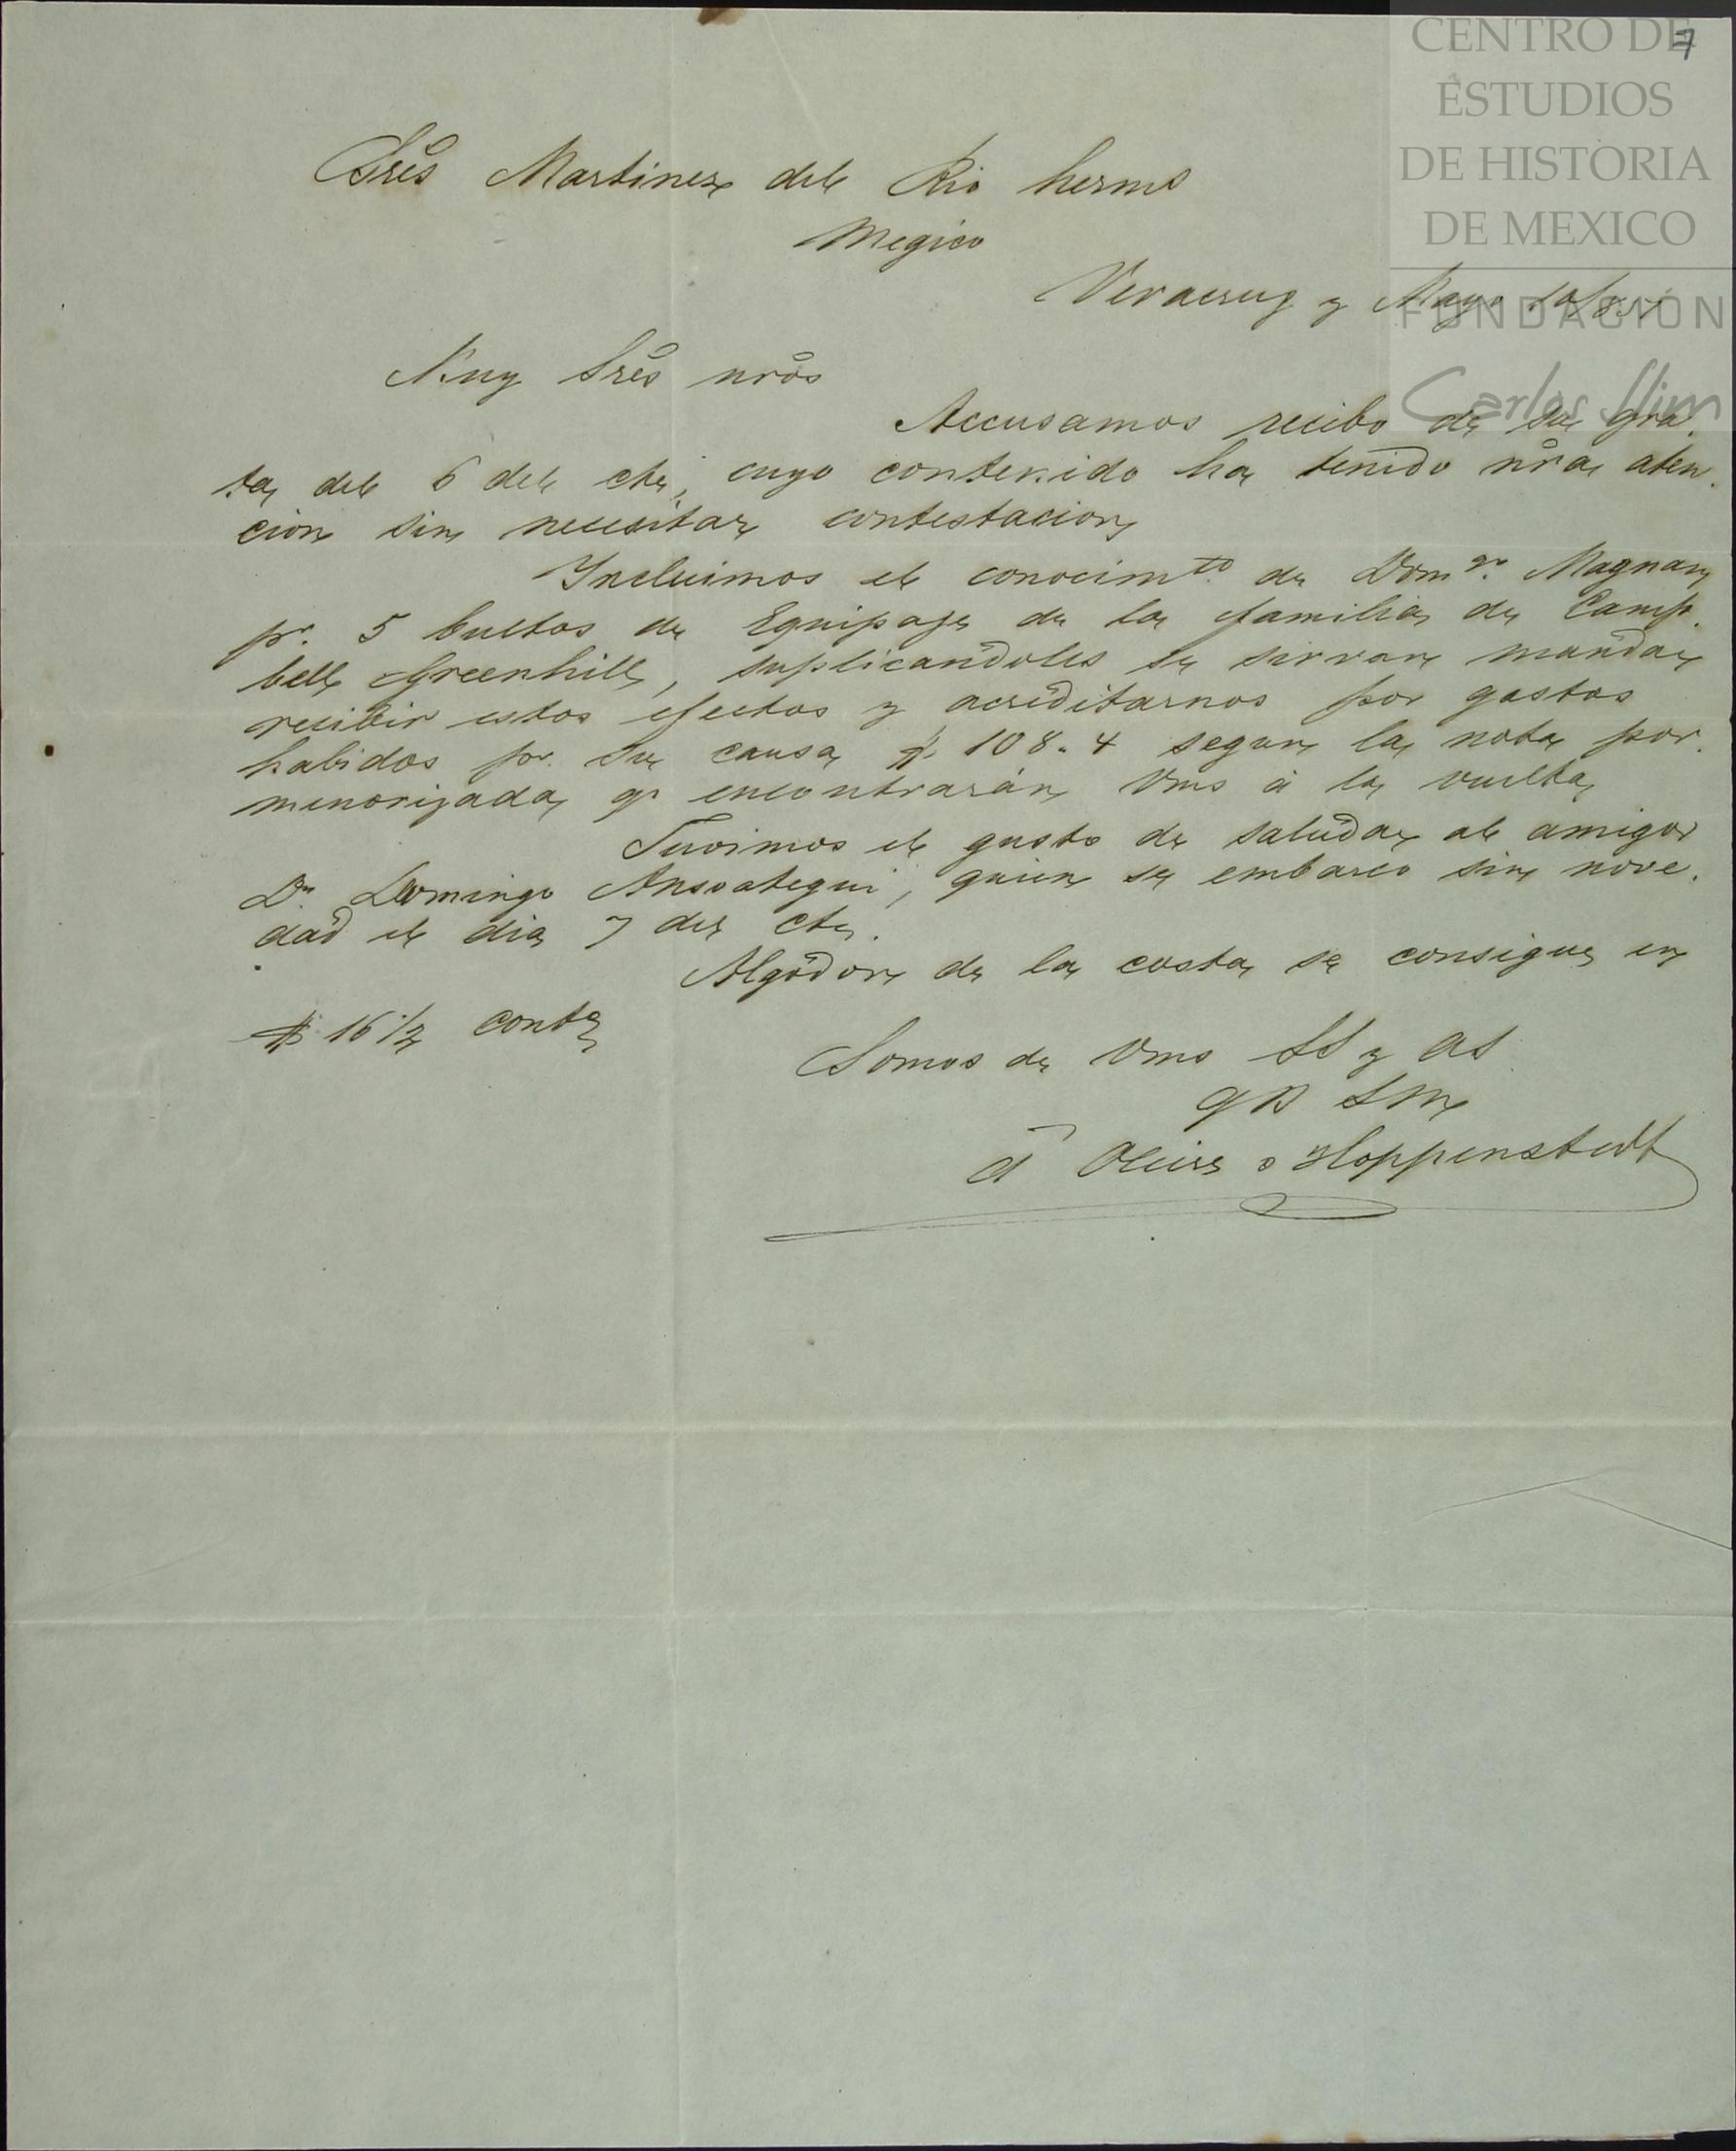 CENTRO DE
ESTUDIOS
DE HISTORIA
DE MEXICO
FUNDACION
Carlos Slim
7
Sres Martinez del Rio hermo
Megico
Veracruz y Mayo 10/
Muy Sres nros
Accusamos recibo de su gra-
ta del 6 del cte, cuyo contenido ha tenido nra aten-
cion sin necesitar contestacion
Incluimos el conocimto de Domgo. Magnan
pr. 5 bultos de Equipage de la familia de Camp-
bell Greenhill, suplicandoles se sirvan mandar
recibir estos efectos y acreditarnos por gastos
habidos pr. su causa $ 108.4 segun la nota por-
menorizada qe encontrarán Vms á la vuelta
Tuvimos el gusto de saludar al amigo
Dn Domingo Ansoategui, quien se embarco sin nove-
dad el dia 7 del cte.
Algodon de la costa se consigue en
$ 16 1/2 conto
Somos de Vms SS y AS
q B S M
Hoppenstedt